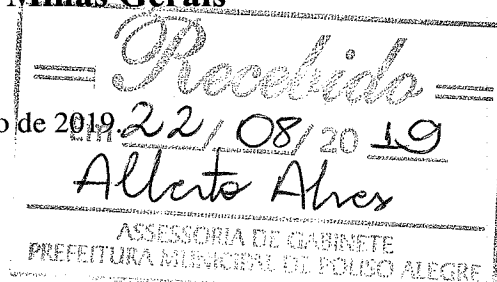 Minas Gerais
Recebido
o de 2019.
Em 22 / 08 / 20 19
Alberto Alves
ASSESSORIA DE GABINETE
PREFEITURA MUNICIPAL DE POUSO ALEGRE